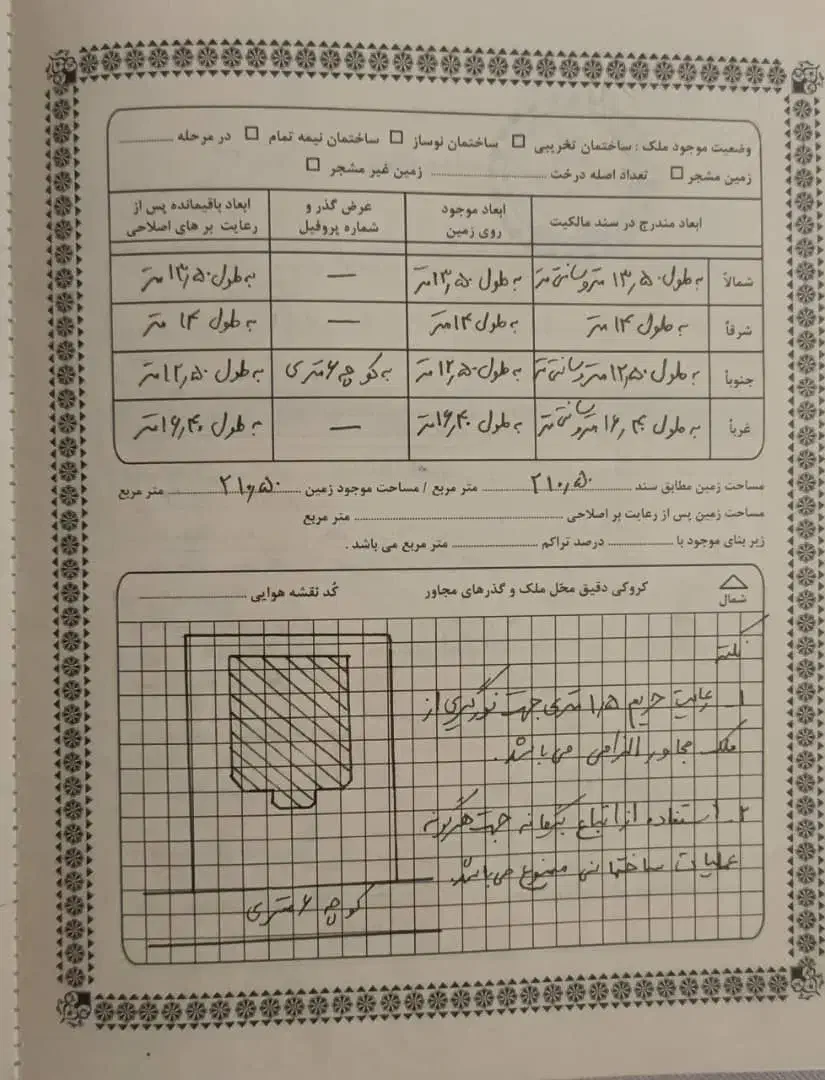 وضعیت موجود ملک : ساختمان تخریبی □ ساختمان نوساز □ ساختمان نیمه تمام □ در مرحله ..............
زمین مشجر □ تعداد اصله درخت .............................. زمین غیر مشجر □
ابعاد مندرج در سند مالکیت
ابعاد موجود روی زمین
عرض گذر و شماره پروفیل
ابعاد باقیمانده پس از رعایت بر های اصلاحی
شمالاً به طول ۱۳٫۵۰ متر و سانتی متر به طول ۱۳٫۵۰ متر — به طول ۱۳٫۵۰ متر
شرقاً به طول ۱۴ متر به طول ۱۴ متر — به طول ۱۴ متر
جنوباً به طول ۱۲٫۵۰ متر و سانتی متر به طول ۱۲٫۵۰ متر به کوچه ۶ متری به طول ۱۲٫۵۰ متر
غرباً به طول ۱۶٫۴۰ متر و سانتی متر به طول ۱۶٫۴۰ متر — به طول ۱۶٫۴۰ متر
مساحت زمین مطابق سند ۲۱۰٫۵۰ متر مربع / مساحت موجود زمین ۲۱۰٫۵۰ متر مربع
مساحت زمین پس از رعایت بر اصلاحی .............................. متر مربع
زیر بنای موجود با .............. درصد تراکم .................. متر مربع می باشد .
شمال
کروکی دقیق محل ملک و گذرهای مجاور
کُد نقشه هوایی ......................
نکته
۱ـ رعایت حریم ۱٫۵ متری جهت نورگیری از
ملک مجاور الزامی می باشد.
۲ـ استفاده از اتباع بیگانه جهت هرگونه
عملیات ساختمانی ممنوع می باشد.
کوچه ۶ متری